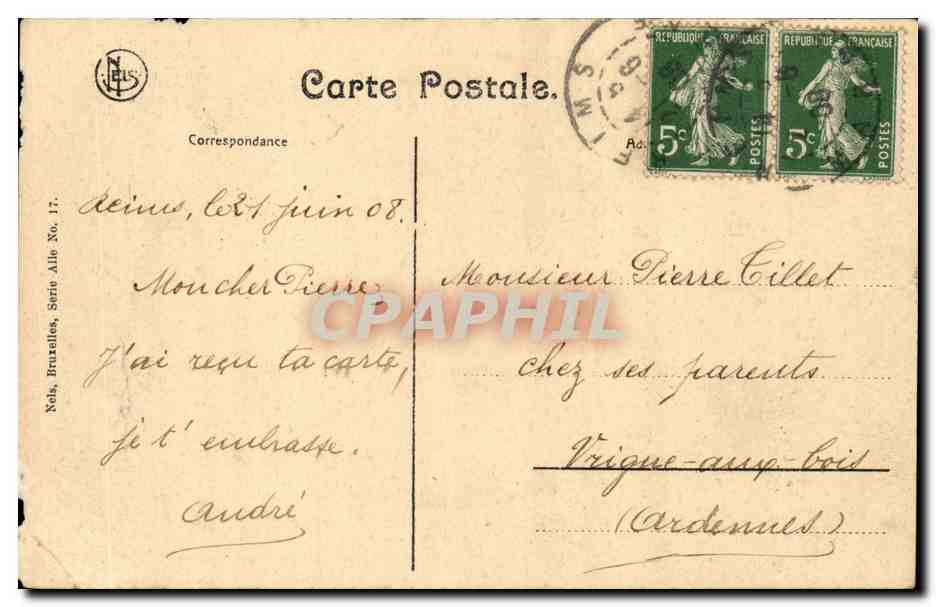 NELS
Carte Postale.
REPUBLIQUE FRANÇAISE
5c
POSTES
REPUBLIQUE FRANÇAISE
5c
POSTES
Correspondance
Reims, le 21 juin 08.
Mon cher Pierre,
J'ai reçu ta carte,
je t'embrasse.
André
Nels, Bruxelles, Serie Alle No. 17.
Monsieur Pierre Tillet
chez ses parents
Vrigne-aux-bois
(Ardennes)
CPAPHIL